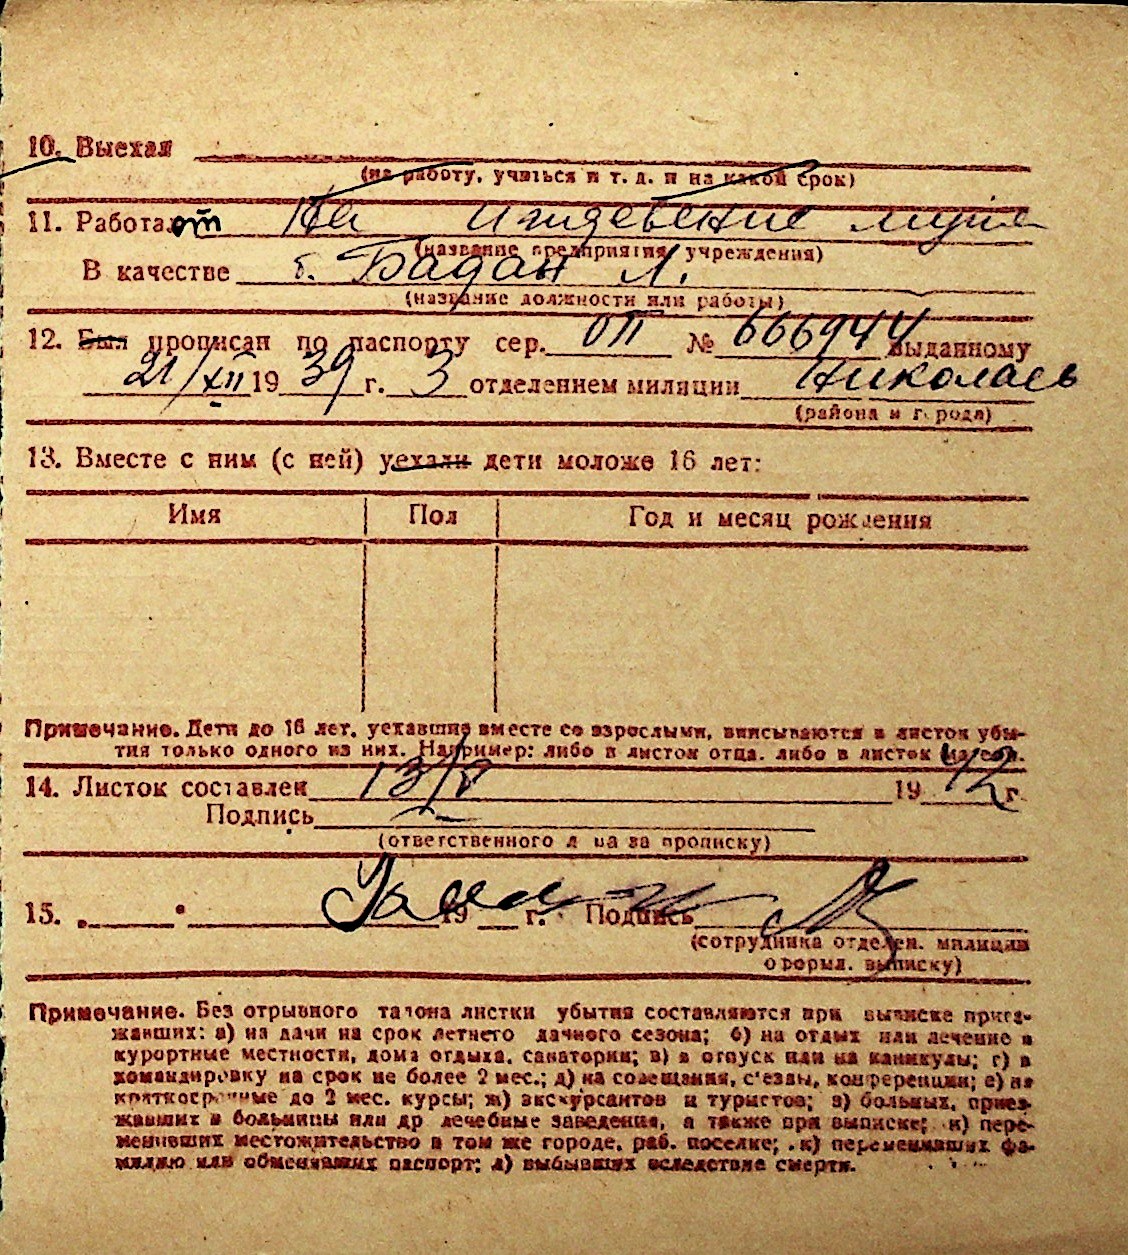 10. Выехал
(на работу, учиться и т. д. и на какой срок)
11. Работает На иждевение мужа
(название предприятия, учреждения)
В качестве б. Бадан Л.
(название должности или работы)
12. Был прописан по паспорту сер. ОП № 666944 выданному
21/XII 1939 г. 3 отделением милиции Николаев
(района и города)
13. Вместе с ним (с ней) уехали дети моложе 16 лет:
Имя Пол Год и месяц рождения
Примечание. Дети до 16 лет, уехавшие вместе со взрослыми, вписываются в листок убы-
тия только одного из них. Например: либо в листок отца, либо в листок матери.
14. Листок составлен 13/V 1942 г.
Подпись
(ответственного лица за прописку)
15. „ " 19 г. Подпись
(сотрудника отделен. милиции
оформл. выписку)
Примечание. Без отрывного талона листки убытия составляются при выписке приез-
жавших: а) на дачи на срок летнего дачного сезона; б) на отдых или лечение в
курортные местности, дома отдыха, санатории; в) в отпуск или на каникулы; г) в
командировку на срок не более 2 мес.; д) на совещания, с'езды, конференции; е) на
краткосрочные до 2 мес. курсы; ж) экскурсантов и туристов; з) больных, приез-
жавших в больницы или др лечебные заведения, а также при выписке; и) пере-
менивших местожительство в том же городе, раб. поселке; к) переменивших фа-
милию или обменявших паспорт; л) выбывших вследствие смерти.